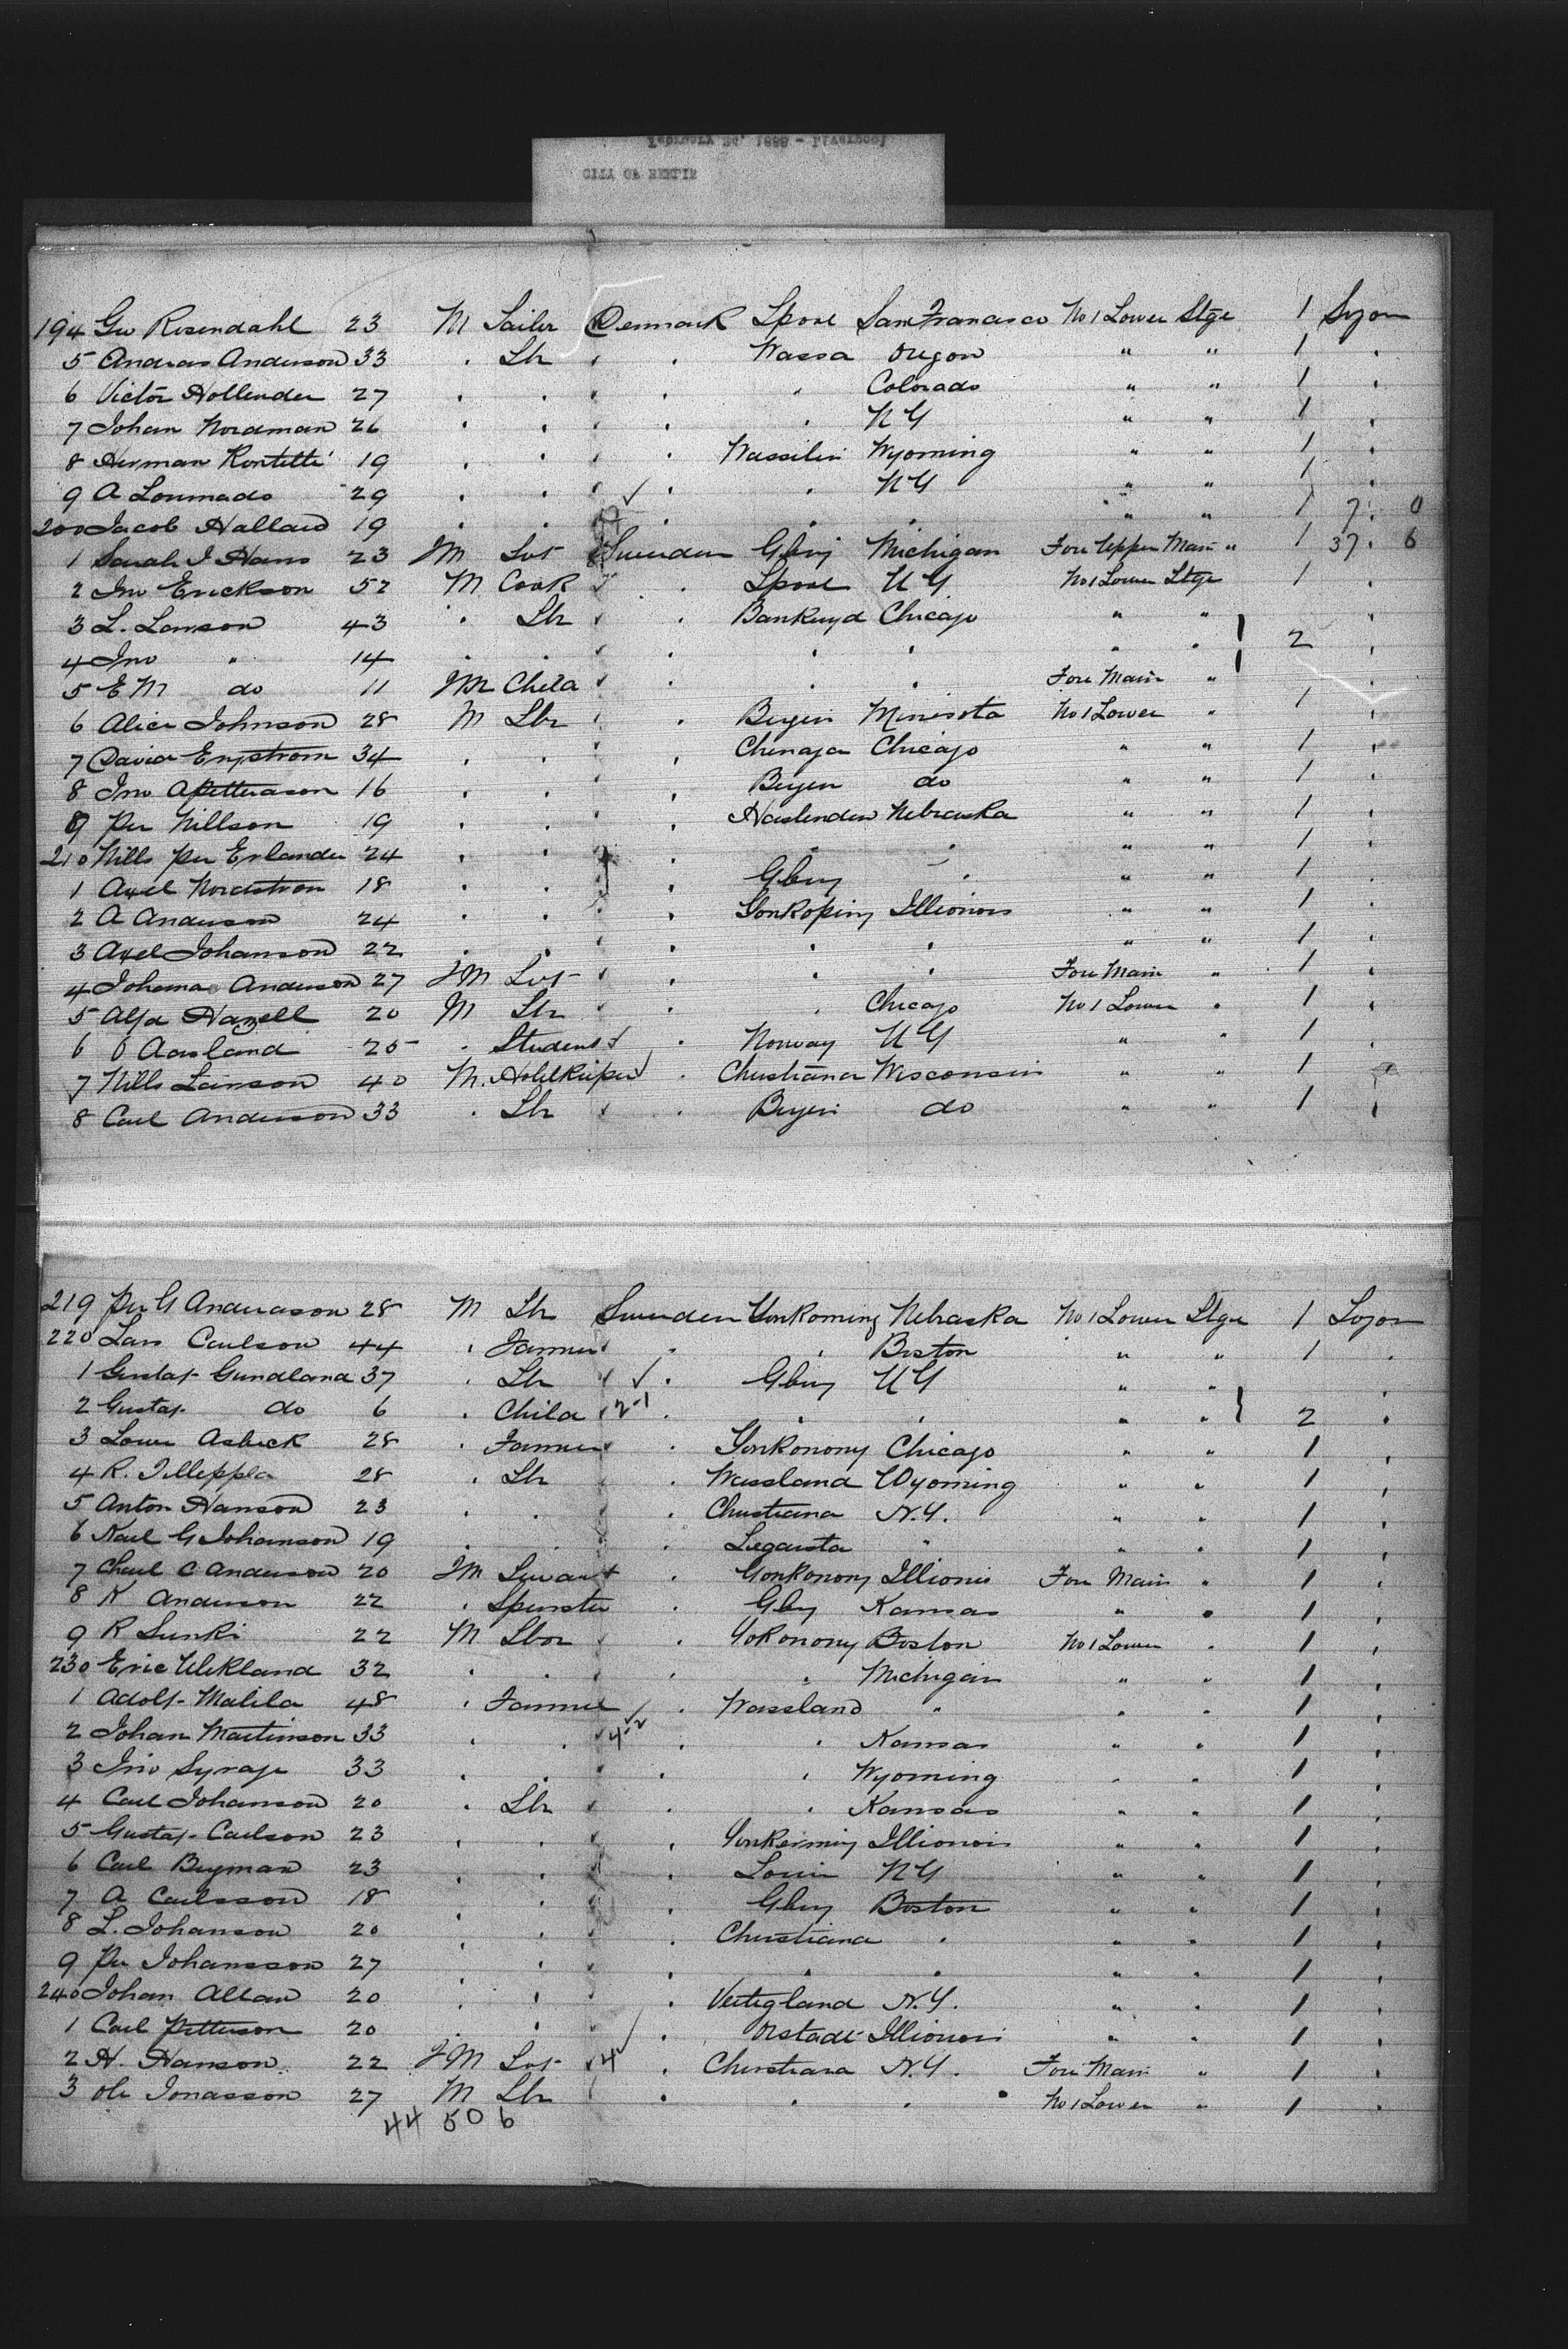 CITY OF BERLIN
194 Geo Rosendahl 23 M Sailor Denmark Lpool San Francisco No 1 Lower Stge 1 Sojon
5 Andras Anderson 33 . Lbr . . Wassa Oregon " " 1 .
6 Victor Hollender 27 . . . . . Colorado " " 1 .
7 Johan Nordman 26 . . . . . NY " " 1 .
8 Herman Rontitti 19 . . . . Wassilin Wyoming " " 1 .
9 A Lonmado 29 . . . . . NY " " 1 .
200 Jacob Hallaid 19 . . . . . . " " 1 7 . 0
1 Sarah J Hans 23 FM Svt Sweeden Gbuj Michigan Fore Upper Main " 1 37 . 6
2 Jno Erickson 52 M Cook . Lpool NY No 1 Lower Stge 1 .
3 L. Lawson 43 . Lbr . Bankuyd Chicago " " .
4 Jno " 14 . . . . . " . 2 .
5 E M do 11 FM Child . . . Fore Main " .
6 Alice Johnson 28 M Lbr . Bergen Minisota No 1 Lower . 1 .
7 David Engstrom 34 . . . Chenaga Chicago " " 1 .
8 Jno A Petterason 16 . . . Bergen do " " 1 .
9 Per Nillson 19 . . . Haslenden Nebraska " " 1 .
210 Nills Per Erlander 24 . . . . . " " 1 .
1 Axel Nordstrom 18 . . . Gbuy . " " 1 .
2 A Anderson 24 . . . Yonkoping Illionois " " 1 .
3 Axel Johanson 22 . . . . . " " 1 .
4 Johana Anderson 27 FM Svt . . . Fore Main . 1 .
5 Alfa Hazell 20 M Lbr . . Chicago No 1 Lower . 1 .
6 O Aasland 25 . Student . Norway NY " " 1 .
7 Nills Larson 40 M. Hotelkeeper . Christiana Wisconsin " " 1 .
8 Carl Anderson 33 . Lbr . Bergen do " " 1 .
219 Per G Anderason 28 M Lbr Sweeden Yonkoming Nebraska No 1 Lower Stge 1 Sojon
220 Lars Carlson 44 . Farmer . . Boston " " 1 .
1 Gustaf Gundland 37 . Lbr . Gbuy NY " " .
2 Gustaf do 6 . Child 2-1 . . . " " 2 .
3 Lowe Asbeck 28 . Farmer . Yonkonony Chicago " " 1 .
4 R. Tilleppla 28 . Lbr . Wassland Wyoming " " 1 .
5 Anton Hanson 23 . . . Christiana N.Y. " " 1 .
6 Karl G Johanson 19 . . . Legausta " " " 1 .
7 Charl C Anderson 20 FM Servant . Yonkonony Illionis Fore Main " 1 .
8 K Anderson 22 . Spinster . Gby Kansas " . 1 .
9 R Sunki 22 M Lbor . Yokonony Boston No 1 Lower . 1 .
230 Eric Wikland 32 . . . . Michigan " " 1 .
1 Adolf Malila 48 . Farmer . Wassland " . . 1 .
2 Johan Martinson 33 . . 4-2 . . Kansas " . 1 .
3 Jno Syraje 33 . . . . Wyoming . . 1 .
4 Carl Johanson 20 . Lbr . . Kansas " . 1 .
5 Gustaf Carlson 23 . . . Yonkeiming Illionois " . 1 .
6 Carl Bergman 23 . . . Louin NY " . 1 .
7 A Carlsson 18 . . . Gbuy Boston " " 1 .
8 L. Johanson 20 . . . Christiana . " " 1 .
9 Per Johansson 27 . . . . . " . 1 .
240 Johan Allan 20 . . . Vertigland N.Y. " . 1 .
1 Carl Petterson 20 . . . Ostadt Illionois " " 1 .
2 H. Hanson 22 FM Svt 4 . Christiana N.Y. Fore Main " 1 .
3 Ole Jonasson 27 M Lbr . . . No 1 Lower " 1 .
44 50 6